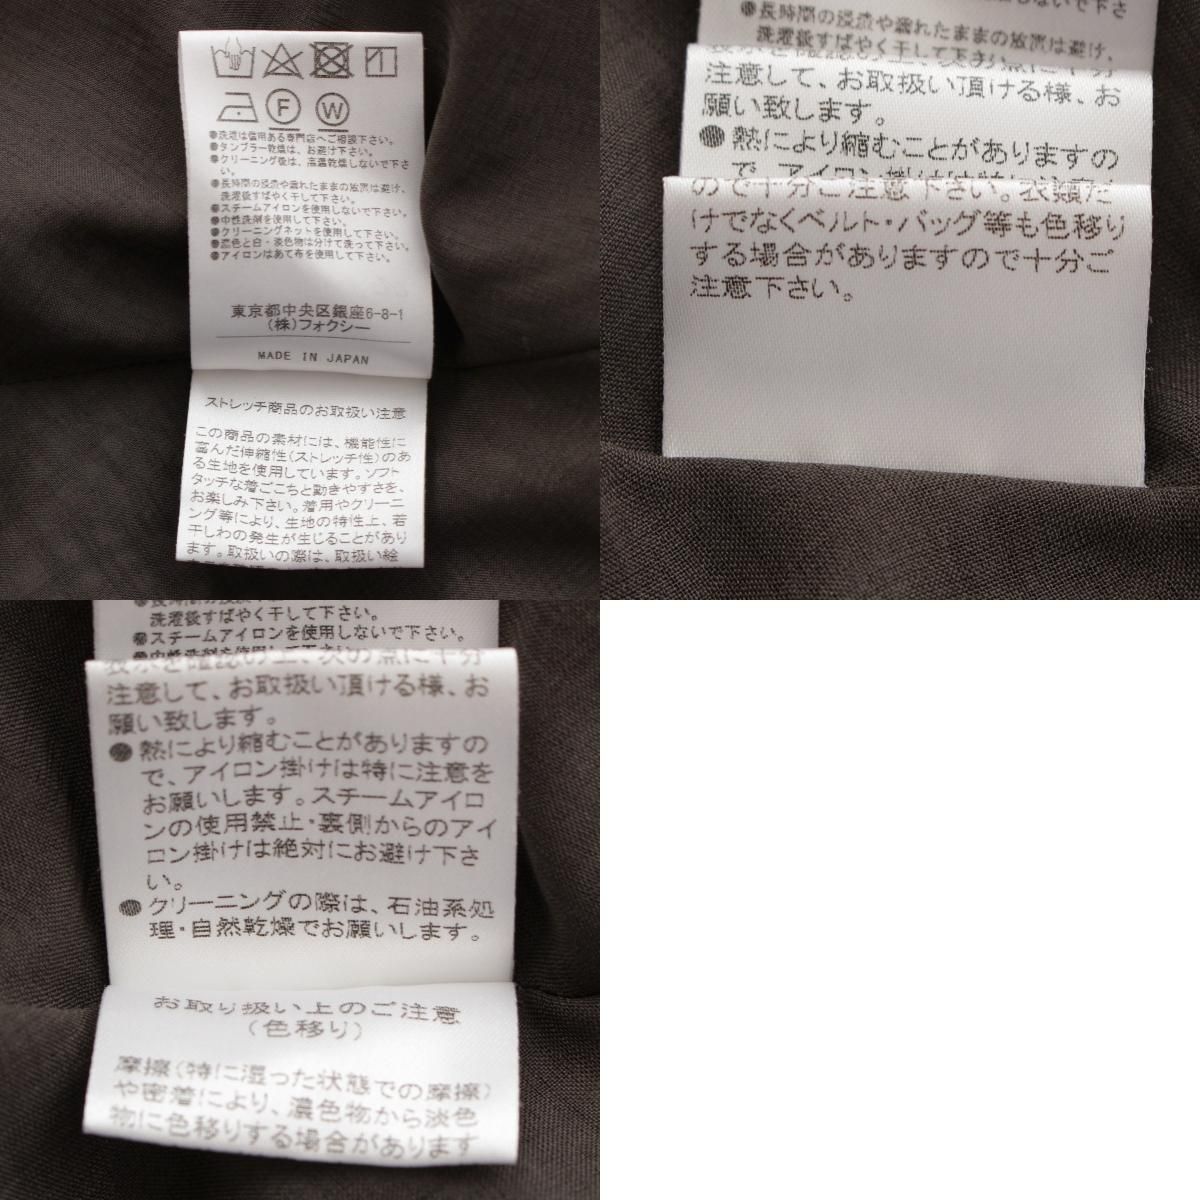 F
W
●洗濯は信用ある専門店へご相談下さい。
●タンブラー乾燥は、お避け下さい。
●クリーニング後は、高温乾燥しないで下さ
い。
●長時間の浸漬や濡れたままの放置は避け、
洗濯後すばやく干して下さい。
●スチームアイロンを使用しないで下さい。
●中性洗剤を使用して下さい。
●クリーニングネットを使用して下さい。
●濃色と白・淡色物は分けて洗って下さい。
●アイロンはあて布を使用して下さい。
東京都中央区銀座6-8-1
(株)フォクシー
MADE IN JAPAN
ストレッチ商品のお取扱い注意
この商品の素材には、機能性に
富んだ伸縮性(ストレッチ性)のあ
る生地を使用しています。ソフト
タッチな着ごこちと動きやすさを、
お楽しみ下さい。着用やクリーニ
ング等により、生地の特性上、若
干しわの発生が生じることがあり
ます。取扱いの際は、取扱い絵
●長時間の浸漬や濡れたままの放置は避け、
洗濯後すばやく干して下さい。
表示を確認の上、次の点に十分
注意して、お取扱い頂ける様、お
願い致します。
●熱により縮むことがありますの
で、アイロン掛けは特に
ので十分ご注意下さい。衣類だ
けでなくベルト・バッグ等も色移り
する場合がありますので十分ご
注意下さい。
洗濯後すばやく干して下さい。
●スチームアイロンを使用しないで下さい。
●中性洗剤を使用して下さい。
表示を確認の上、次の点に十分
注意して、お取扱い頂ける様、お
願い致します。
●熱により縮むことがありますの
で、アイロン掛けは特に注意を
お願いします。スチームアイロ
ンの使用禁止・裏側からのアイ
ロン掛けは絶対にお避け下さ
い。
●クリーニングの際は、石油系処
理・自然乾燥でお願いします。
お取り扱い上のご注意
(色移り)
摩擦(特に湿った状態での摩擦)
や密着により、濃色物から淡色
物に色移りする場合があります